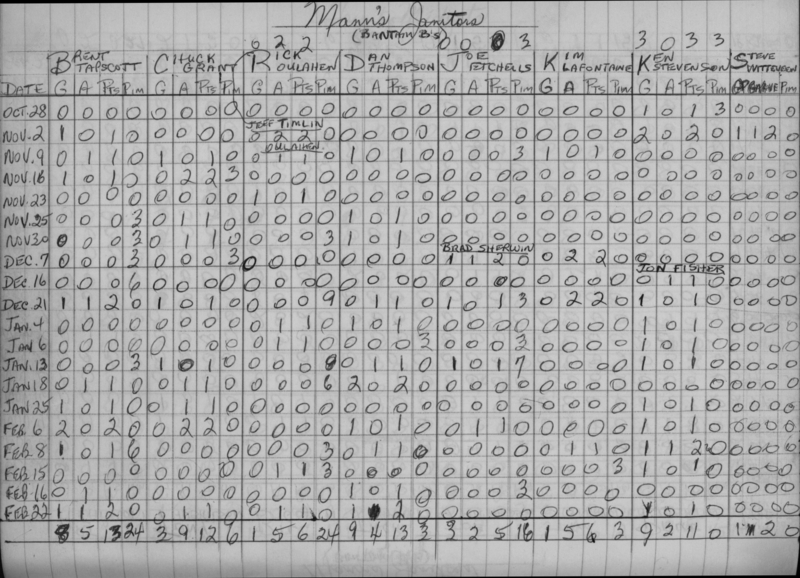 Mann's Janitors
(BANTAM B's)
0 2 2 0 0 0 3 3 0 3 3
BRENT TAPSCOTT CHUCK GRANT RICK OULAHEN DAN THOMPSON JOE PETCHELLS KIM LAFONTAINE KEN STEVENSON STEVE WITTEVEEN
DATE G A PTS PIM G A PTS PIM G A PTS PIM G A PTS PIM G A PTS PIM G A PTS PIM G A PTS PIM PIM
OCT.28 0 0 0 0 0 0 0 0 0 0 0 0 0 0 0 0 0 0 0 0 0 0 0 0 1 0 1 3 0 0 0 0
JEFF TIMLIN
NOV.2 1 0 1 0 0 0 0 0 0 2 2 0 0 0 0 0 0 0 0 0 0 0 0 0 2 0 2 0 1 1 2 0
OULAHEN
NOV.9 0 1 1 0 1 0 1 0 0 1 1 0 1 0 1 0 0 0 0 3 1 0 1 0 0 0 0 0 0 0 0 0
NOV.16 1 0 1 0 0 2 2 3 0 0 0 0 0 0 0 0 0 0 0 0 0 0 0 0 0 0 0 0 0 0 0 0
NOV.23 0 0 0 0 0 0 0 0 1 0 1 0 0 0 0 0 0 0 0 0 0 0 0 0 0 0 0 0 0 0 0 0
NOV.25 0 0 0 3 0 1 1 0 0 0 0 0 1 0 1 0 0 0 0 0 0 0 0 0 0 0 0 0 0 0 0 0
NOV30 0 0 0 3 0 1 1 0 0 0 0 3 1 0 1 0 0 0 0 0 0 0 0 0 0 0 0 0 0 0 0 0
BRAD SHERWIN
DEC.7 0 0 0 3 0 0 0 3 0 0 0 0 0 0 0 0 1 1 2 0 0 2 2 0 0 0 0 0 0 0 0 0
JON FISHER
DEC 16 0 0 0 6 0 0 0 0 0 0 0 0 0 0 0 0 0 0 0 0 0 0 0 0 0 1 1 0 0 0 0 0
DEC.21 1 1 2 0 1 0 1 0 0 0 0 9 0 1 1 0 1 0 1 3 0 2 2 0 1 0 1 0 0 0 0 0
JAN.4 0 0 0 0 0 0 0 0 0 1 1 0 1 0 1 0 0 0 0 0 0 0 0 0 1 0 1 0 0 0 0 0
JAN 6 0 0 0 0 0 0 0 0 0 1 1 0 0 0 0 3 0 0 0 3 0 0 0 0 1 0 1 0 0 0 0 0
JAN.13 0 0 0 3 1 0 1 0 0 0 0 0 0 1 1 0 1 0 1 7 0 0 0 0 1 0 1 0 0 0 0 0
JAN 18 0 1 1 0 0 1 1 0 0 0 0 6 2 0 2 0 0 0 0 0 0 0 0 0 0 0 0 0 0 0 0 0
JAN 25 1 0 1 0 0 1 1 0 0 0 0 0 0 0 0 0 0 0 0 0 0 0 0 0 1 0 1 0 0 0 0 0
FEB. 6 2 0 2 0 0 2 2 0 0 0 0 0 1 0 1 0 0 1 1 0 0 0 0 0 1 0 1 0 0 0 0 0
FEB.8 1 0 1 6 0 0 0 0 0 0 0 3 0 1 1 0 0 0 0 0 0 1 1 0 1 1 2 0 0 0 0 0
FEB.15 0 0 0 0 0 0 0 0 0 1 1 3 0 0 0 0 0 0 0 0 0 0 0 3 1 0 1 0 0 0 0 0
FEB.16 0 1 1 0 0 0 0 0 0 0 0 0 1 0 1 0 0 0 0 3 0 0 0 0 0 0 0 0 0 0 0 0
FEB.22 1 1 2 0 0 1 1 0 0 1 1 0 1 2 0 0 0 0 0 0 0 0 0 1 0 1 0 0 0 0 0
8 5 13 24 3 9 12 6 1 5 6 24 9 4 13 3 3 2 5 16 1 5 6 3 9 2 11 0 1 2 0